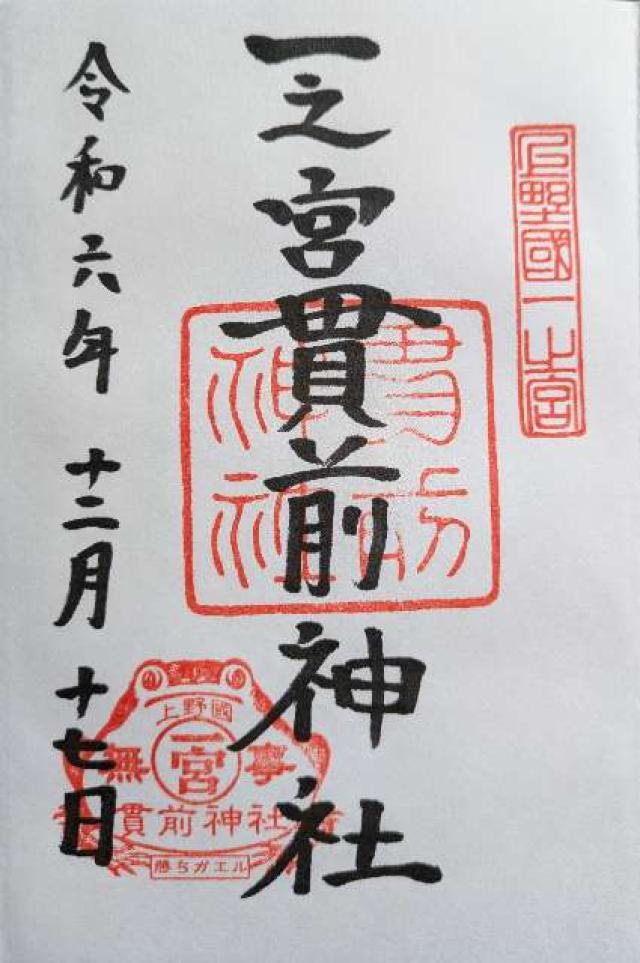 上野國一之宮
一之宮貫前神社
貫前
神社
令和六年十二月十七日
上野國
一宮
無事
貫前神社
勝ちガエル